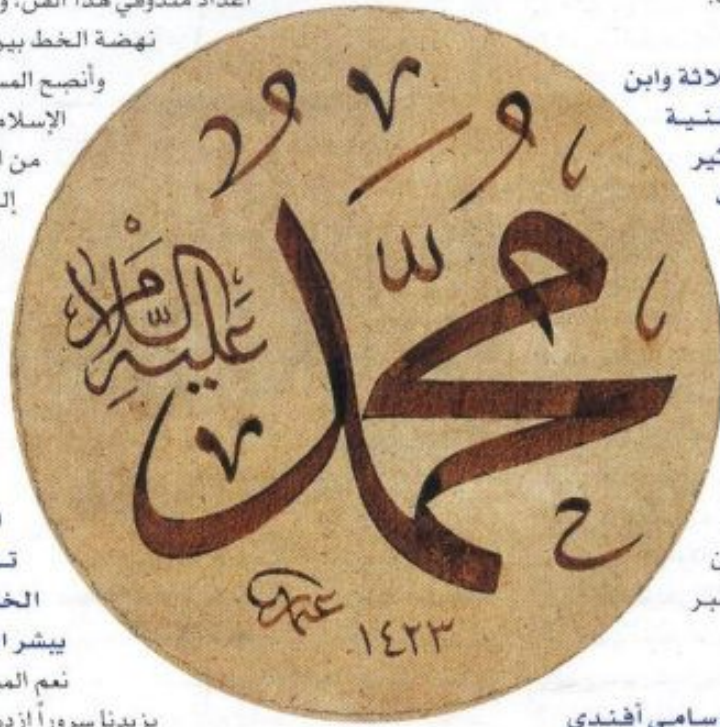 أعداد متذوقي هذا الفن، و
نهضة الخط بير
وأنصح المس
الإسلام
من ا
إل
لاثة وابن
سنية
ثير
مُحَمَّدٌ
عَلَيْهِ السَّلَامُ
١٤٢٣
ن
بر
تـ
الخ
يبشر ا
نعم الم
يزيدنا سروراً ازد
سامي أفندي